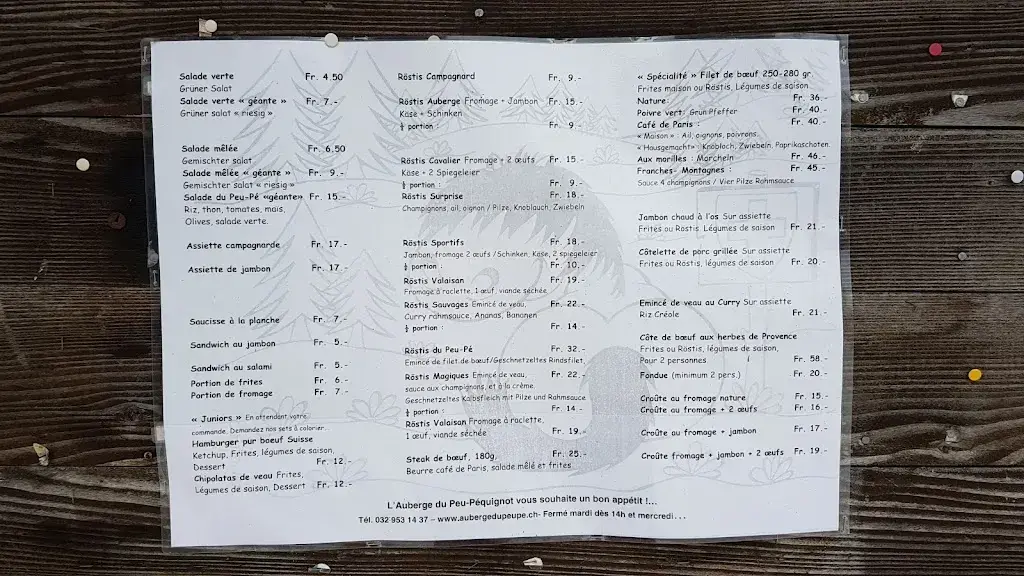 Salade verte Fr. 4.50
Grüner Salat
Salade verte « géante » Fr. 7.-
Grüner salat « riesig »
Salade mêlée Fr. 6.50
Gemischter salat
Salade mêlée « géante » Fr. 9.-
Gemischter salat « riesig »
Salade du Peu-Pé «géante» Fr. 15.-
Riz, thon, tomates, mais,
Olives, salade verte.
Assiette campagnarde Fr. 17.-
Assiette de jambon Fr. 17.-
Saucisse à la planche Fr. 7.-
Sandwich au jambon Fr. 5.-
Sandwich au salami Fr. 5.-
Portion de frites Fr. 6.-
Portion de fromage Fr. 7.-
« Juniors » En attendant votre
commande. Demandez nos sets à colorier.
Hamburger pur bœuf Suisse
Ketchup, Frites, légumes de saison,
Dessert Fr. 12.-
Chipolatas de veau Frites,
Légumes de saison, Dessert Fr. 12.-
Röstis Campagnard Fr. 9.-
Röstis Auberge Fromage + Jambon Fr. 15.-
Käse + Schinken
½ portion : Fr. 9.-
Röstis Cavalier Fromage + 2 œufs Fr. 15.-
Käse + 2 Spiegeleier
½ portion : Fr. 9.-
Röstis Surprise Fr. 18.-
Champignons, ail, oignon / Pilze, Knoblauch, Zwiebeln
Röstis Sportifs Fr. 18.-
Jambon, fromage 2 œufs / Schinken, Käse, 2 spiegeleier
½ portion : Fr. 10.-
Röstis Valaisan Fr. 19.-
Fromage à raclette, 1 œuf, viande séchée
Röstis Sauvages Emincé de veau, Fr. 22.-
Curry rahmsauce, Ananas, Bananen
½ portion : Fr. 14.-
Röstis du Peu-Pé Fr. 32.-
Emincé de filet de bœuf/Geschnetzeltes Rindsfilet,
Röstis Magiques Emincé de veau, Fr. 22.-
sauce aux champignons, et à la crème.
Geschnetzeltes Kalbsfleich mit Pilze und Rahmsauce
½ portion : Fr. 14.-
Röstis Valaisan Fromage à raclette,
1 œuf, viande séchée Fr. 19.-
Steak de bœuf, 180g. Fr. 25.-
Beurre café de Paris, salade mêlé et frites
« Spécialité » Filet de bœuf 250-280 gr.
Frites maison ou Röstis, Légumes de saison
Nature: Fr. 36.-
Poivre vert: Grün Pfeffer Fr. 40.-
Café de Paris : Fr. 40.-
« Maison » : Ail, oignons, poivrons.
« Hausgemacht» : Knobloch, Zwiebeln, Paprikaschoten.
Aux morilles : Morcheln Fr. 46.-
Franches- Montagnes : Fr. 45.-
Sauce 4 champignons / Vier Pilze Rahmsauce
Jambon chaud à l'os Sur assiette
Frites ou Röstis. Légumes de saison Fr. 21.-
Côtelette de porc grillée Sur assiette
Frites ou Röstis, légumes de saison Fr. 20.-
Emincé de veau au Curry Sur assiette
Riz Créole Fr. 21.-
Côte de bœuf aux herbes de Provence
Frites ou Röstis, légumes de saison,
Pour 2 personnes Fr. 58.-
Fondue (minimum 2 pers.) Fr. 20.-
Croûte au fromage nature Fr. 15.-
Croûte au fromage + 2 œufs Fr. 16.-
Croûte au fromage + jambon Fr. 17.-
Croûte fromage + jambon + 2 œufs Fr. 19.-
L'Auberge du Peu-Péquignot vous souhaite un bon appétit !...
Tél. 032 953 14 37 – www.aubergedupeupe.ch- Fermé mardi dès 14h et mercredi...